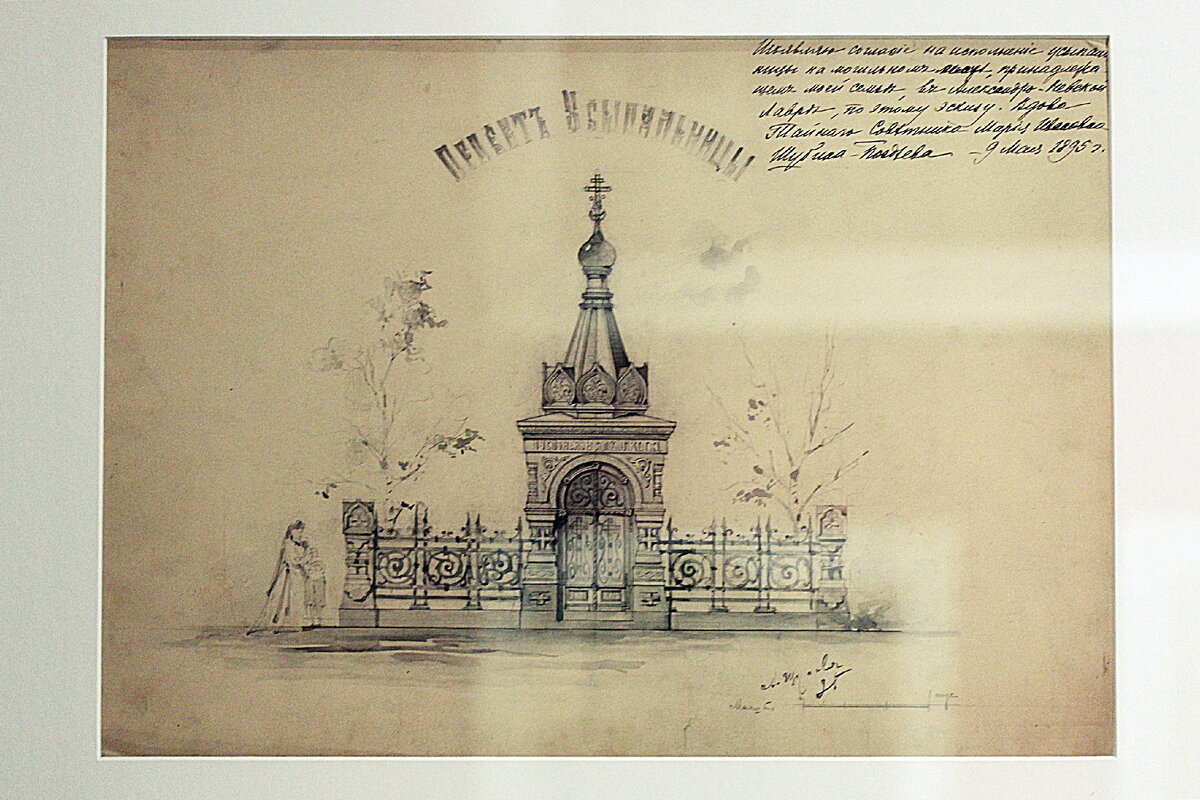 Изъявляю согласіе на исполненіе усыпаль
ницы на могильномъ мѣстѣ, принадлежа
щемъ моей семьѣ въ Александро-Невской
Лаврѣ, по этому эскизу. Вдова
Тайнаго Совѣтника Марія Ивановна
Шубина-Поздѣева – 9 Мая 1895 г.
Проектъ Усыпальницы
95
Масшт.